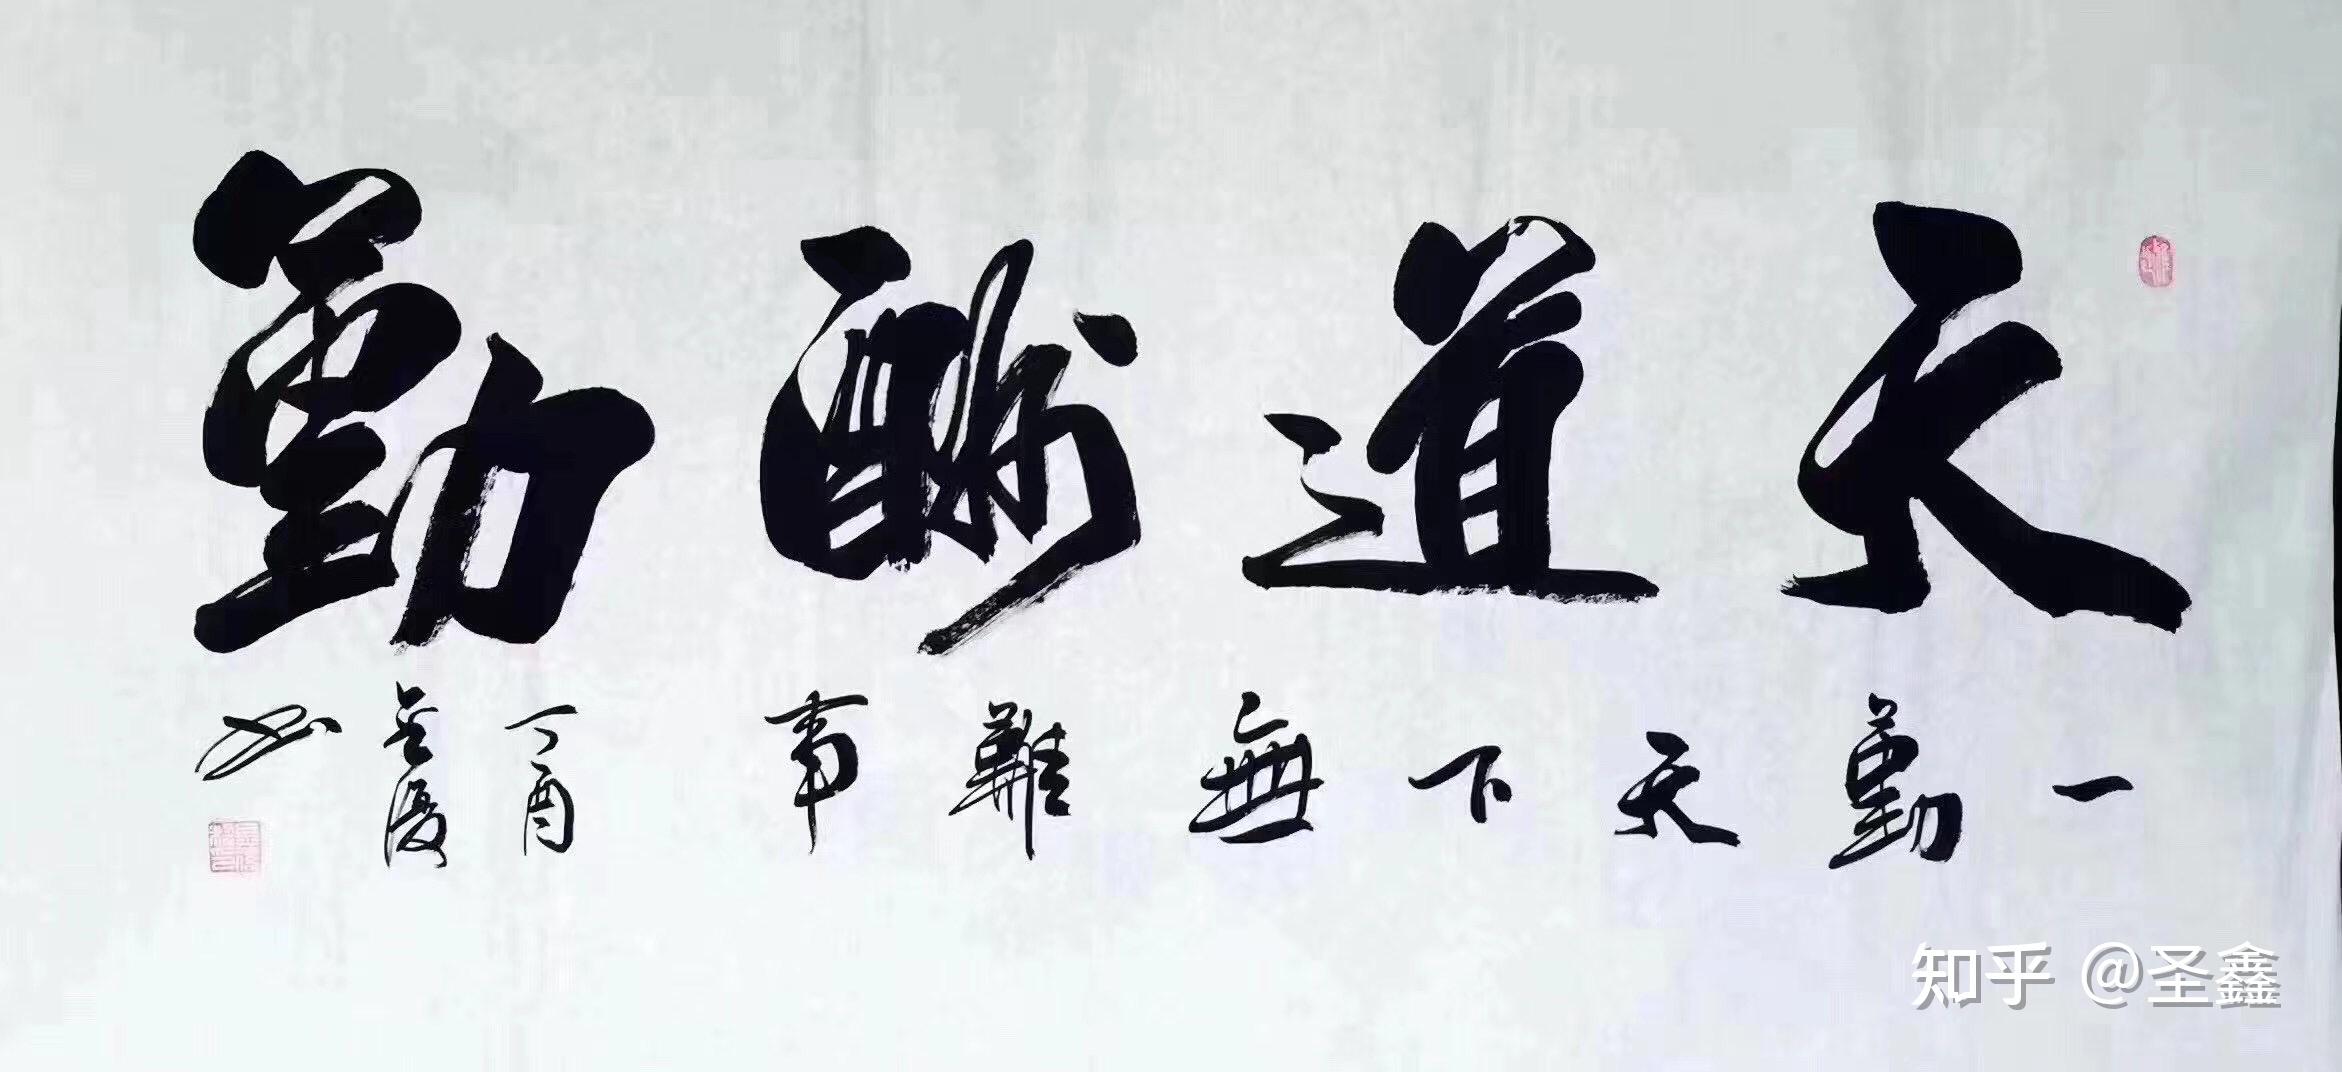 天道酬勤
一勤天下無難事
丁酉
書
知乎 @圣鑫